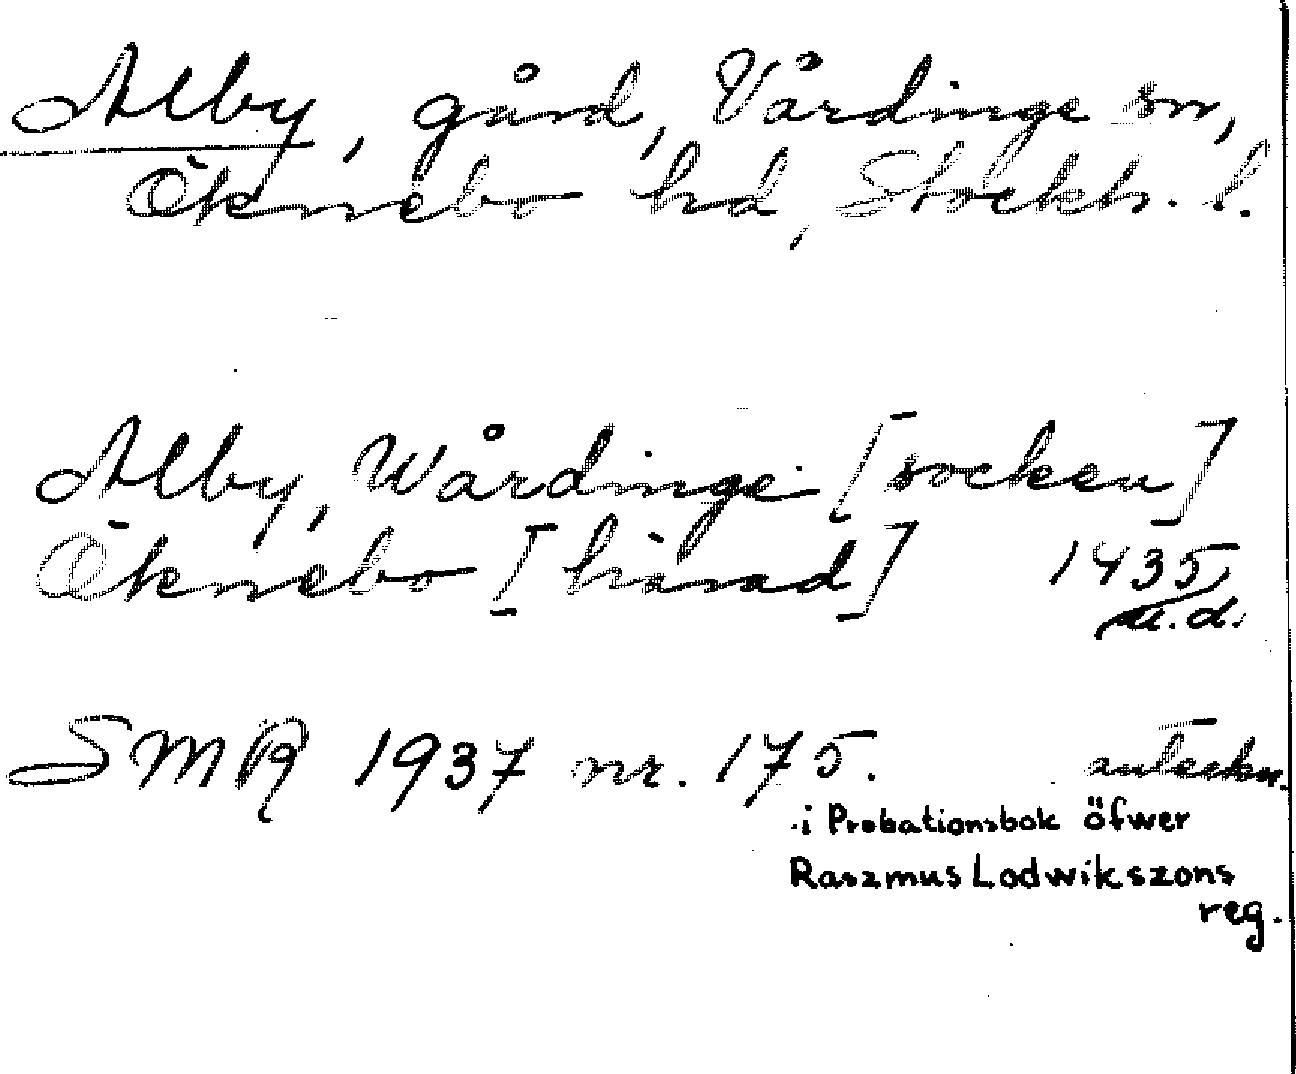 Alby, gård, Vårdinge sn,
Öknebo hd, Stockh. l.
Alby, Wårdinge [socken]
Öknebo [härad] 1435
u.d.
SMR 1937 nr. 175. anteckn.
i Probationsbok öfwer
Raszmus Lodwikszons
reg.